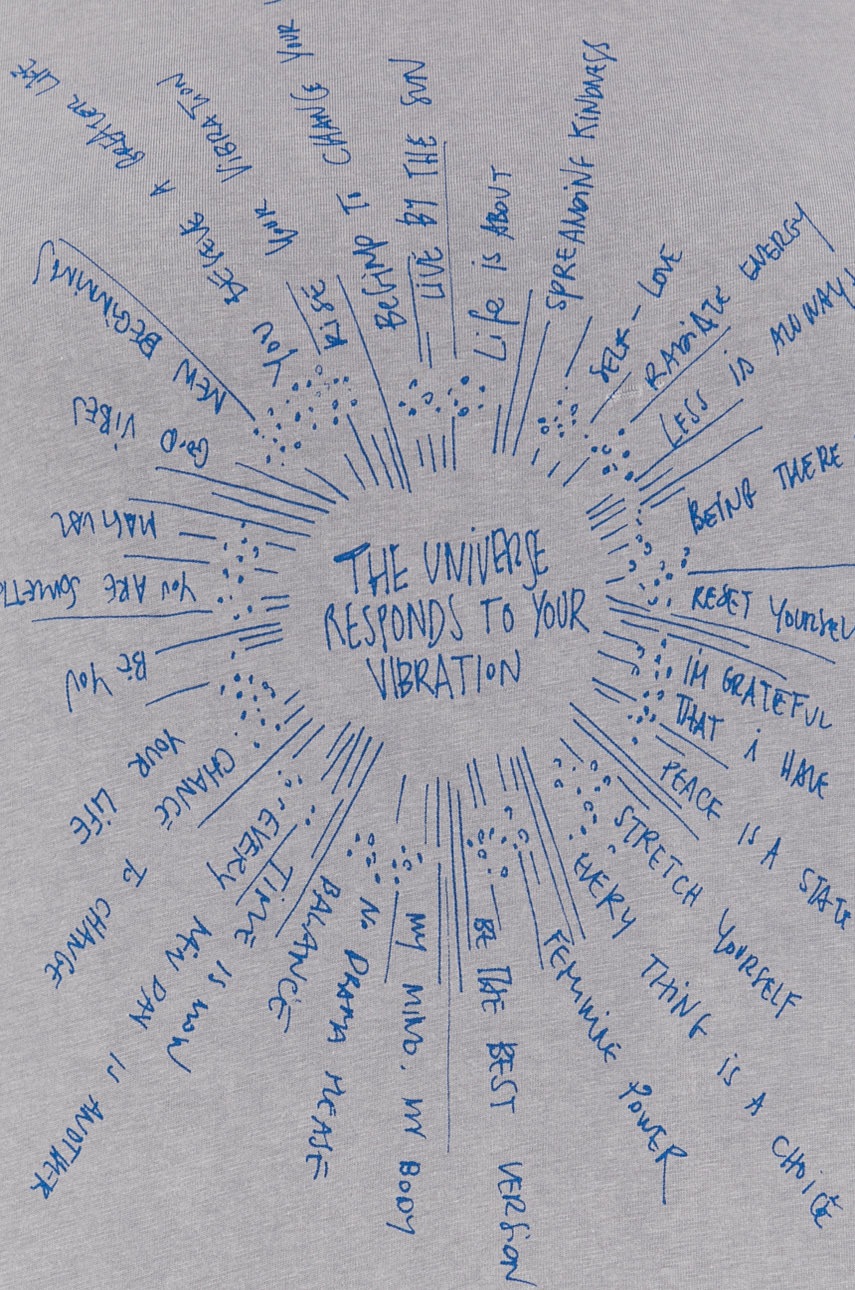 THE UNIVERSE
RESPONDS TO YOUR
VIBRATION
LIVE BY THE SUN
LIFE IS ABOUT
SPREANDING KINDNESS
SELF-LOVE
RADIATE ENERGY
LESS IS ALWAYS
BEING THERE
RESET YOURSELF
IM GRATEFUL
THAT I HAVE
PEACE IS A STATE
STRETCH YOURSELF
EVERY THING IS A CHOICE
FEMININE POWER
BE THE BEST VERSION
MY MIND. MY BODY
NO DRAMA PLEASE
BALANCE
TIME IS NOW
EVERY NEW DAY IS ANOTHER
CHANCE TO CHANGE
YOUR LIFE
BE YOU
YOU ARE
GOOD VIBES
NEW BEGINNINGS
YOU DESERVE A GREATER LIFE
RISE YOUR VIBRATION
TO CHANGE YOUR